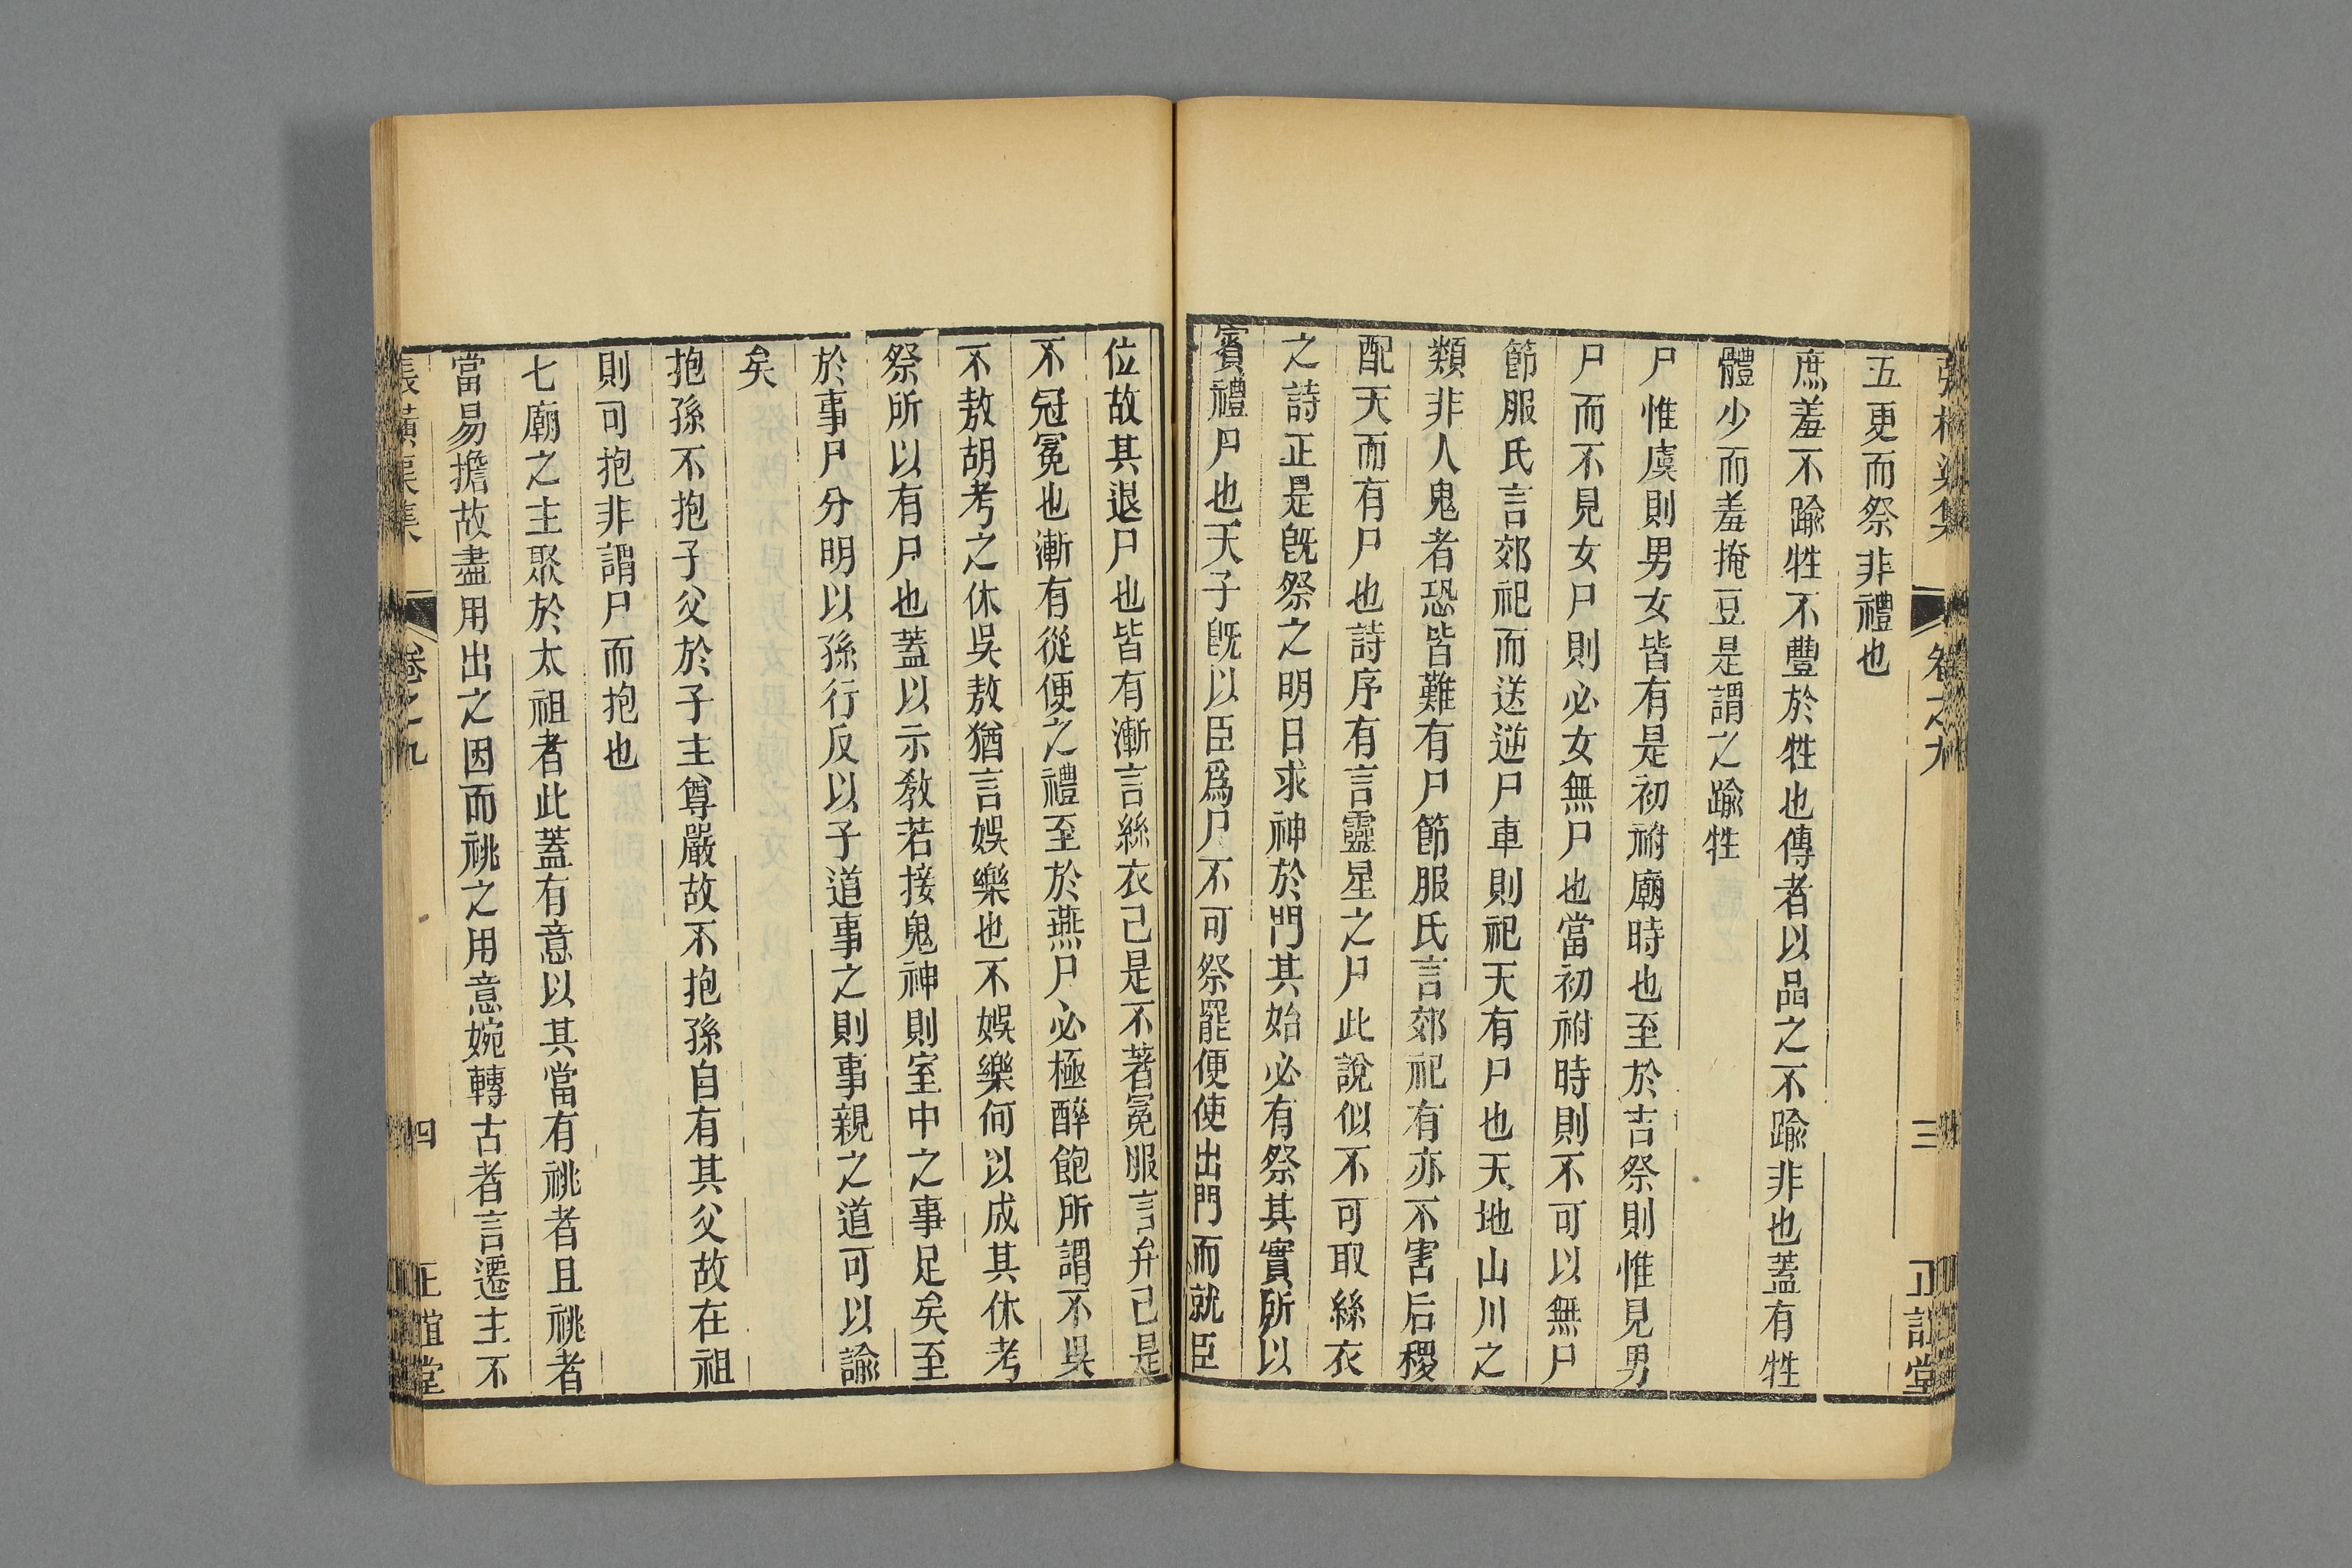 張橫渠集 卷之九 三 正誼堂
五更而祭非禮也
庶羞不踰牲不豐於牲也傳者以品之不踰非也蓋有牲
體少而羞掩豆是謂之踰牲
尸惟虞則男女皆有是初祔廟時也至於吉祭則惟見男
尸而不見女尸則必女無尸也當初祔時則不可以無尸
節服氏言郊祀而送逆尸車則祀天有尸也天地山川之
類非人鬼者恐皆難有尸節服氏言郊祀有亦不害后稷
配天而有尸也詩序有言靈星之尸此說似不可取絲衣
之詩正是旣祭之明日求神於門其始必有祭其實所以
賓禮尸也天子旣以臣爲尸不可祭罷便使出門而就臣
位故其退尸也皆有漸言絲衣已是不著冕服言弁已是
不冠冕也漸有從便之禮至於燕尸必極醉飽所謂不吳
不敖胡考之休吳敖猶言娛樂也不娛樂何以成其休考
祭所以有尸也蓋以示敎若接鬼神則室中之事足矣至
於事尸分明以孫行反以子道事之則事親之道可以諭
矣
抱孫不抱子父於子主尊嚴故不抱孫自有其父故在祖
則可抱非謂尸而抱也
七廟之主聚於太祖者此蓋有意以其當有祧者且祧者
當易擔故盡用出之因而祧之用意婉轉古者言遷主不
張橫渠集 卷之九 四 正誼堂